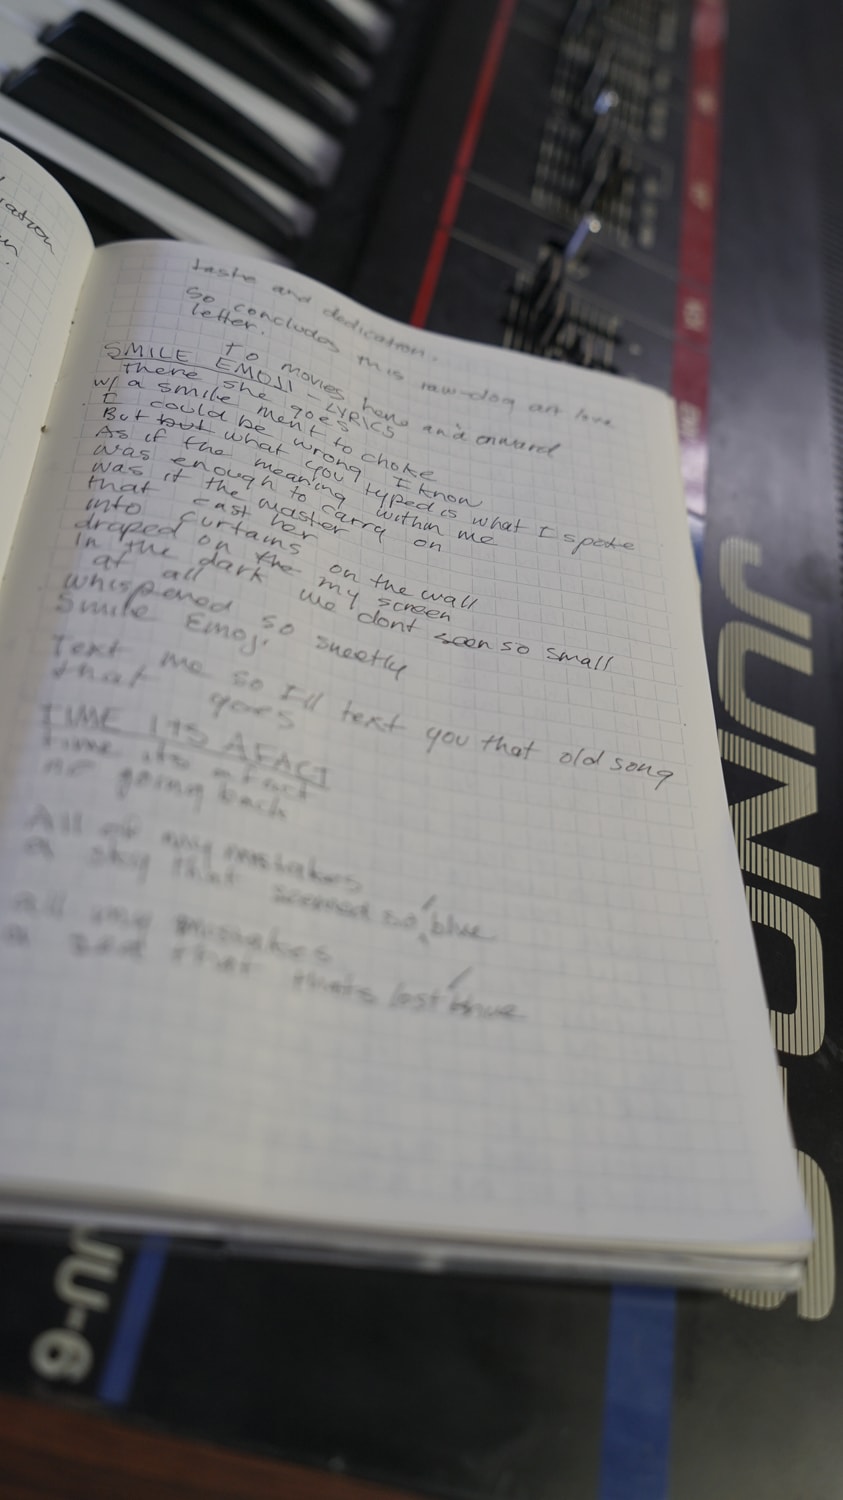 ication
taste and dedication.
So concludes this raw-dog art love
letter.
To movies here and onward
SMILE EMOJI - LYRICS
there she goes
w/ a smile ment to choke
I could be wrong I know
But but what you typed is what I spoke
As if the meaning within me
was enough to carry on
was if the master
that cast her
into curtains on the wall
draped on the my screen
in the dark we dont seen so small
at all
whispered so sweetly
Smile Emoji
Text me so I'll text you that old song
that goes
TIME ITS A FACT
time its a fact
no going back
All of my mistakes
a sky that seemed so blue
all my mistakes
a that thats lost
JUNO-6
JU-6